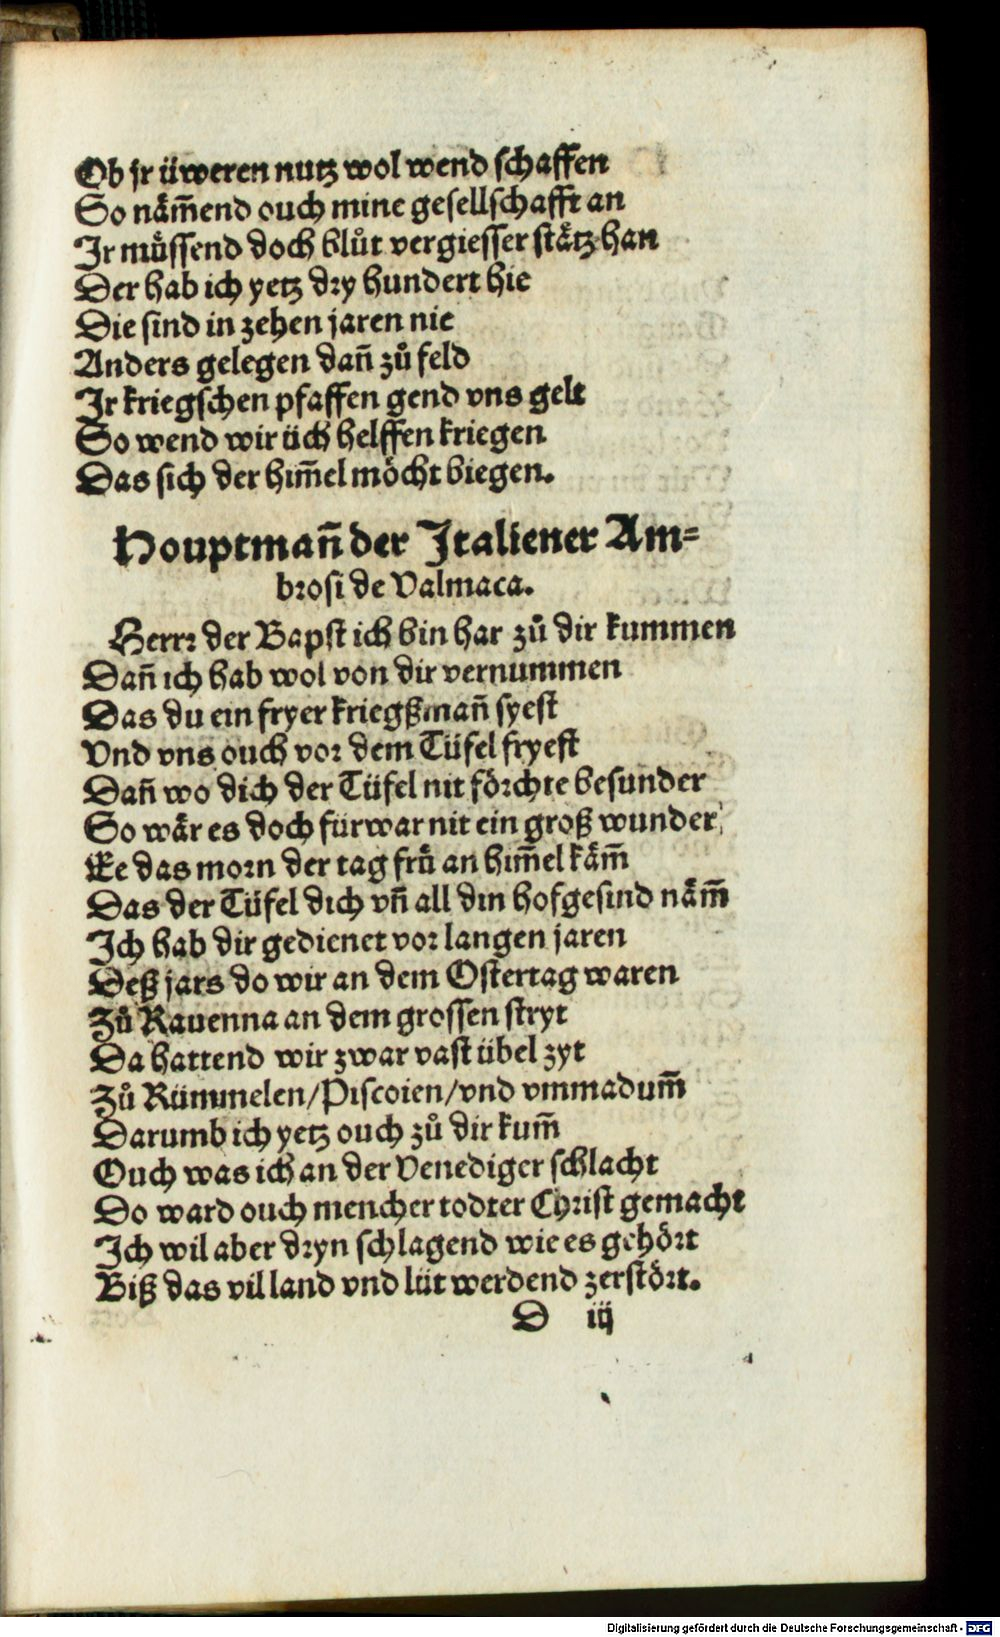 Ob jr üweren nutz wol wend schaffen
So näm̄end ouch mine gesellschafft an
Ir müssend doch blůt vergiesser stätz han
Der hab ich yetz dry hundert hie
Die sind in zehen jaren nie
Anders gelegen dañ zů feld
Ir kriegschen pfaffen gend vns gelt
So wend wir üch helffen kriegen
Das sich der him̄el möcht biegen.
Houptmañ der Italiener Am=
brosi de Valmaca.
Herr der Bapst ich bin har zů dir kummen
Dañ ich hab wol von dir vernummen
Das du ein fryer kriegßmañ syest
Vnd vns ouch vor dem Tüfel fryest
Dañ wo dich der Tüfel nit förchte besunder
So wär es doch fürwar nit ein groß wunder
Ee das morn der tag frü an him̄el käm̄
Das der Tüfel dich vñ all din hofgesind näm̄
Ich hab dir gedienet vor langen jaren
Deß jars do wir an dem Ostertag waren
Zů Rauenna an dem grossen stryt
Da hattend wir zwar vast übel zyt
Zů Rümmelen/Piscoien/vnd vmmadum̄
Darumb ich yetz ouch zů dir kum̄
Ouch was ich an der Venediger schlacht
Do ward ouch mencher todter Christ gemacht
Ich wil aber dryn schlagend wie es gehört
Biß das vil land vnd lüt werdend zerstört.
D iij
Digitalisierung gefördert durch die Deutsche Forschungsgemeinschaft - DFG